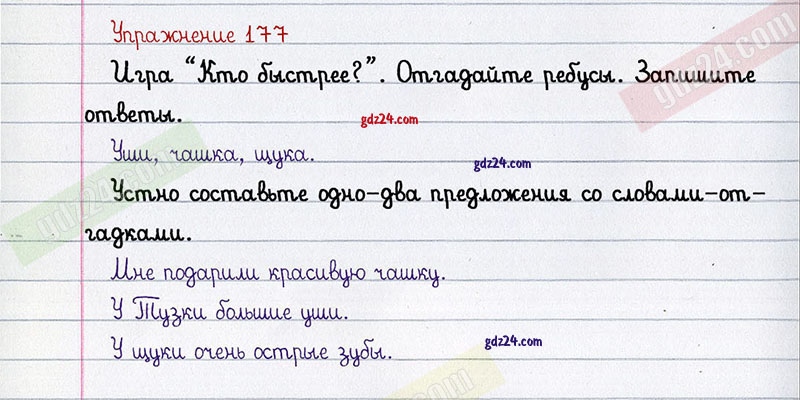 Упражнение 177
Игра “Кто быстрее?”. Отгадайте ребусы. Запишите
ответы.
gdz24.com
Уши, чашка, щука.
gdz24.com
Устно составьте одно-два предложения со словами-от-
гадками.
Мне подарили красивую чашку.
У Тузки большие уши.
У щуки очень острые зубы.
gdz24.com
gdz24.com
gdz24.com
gdz24.com